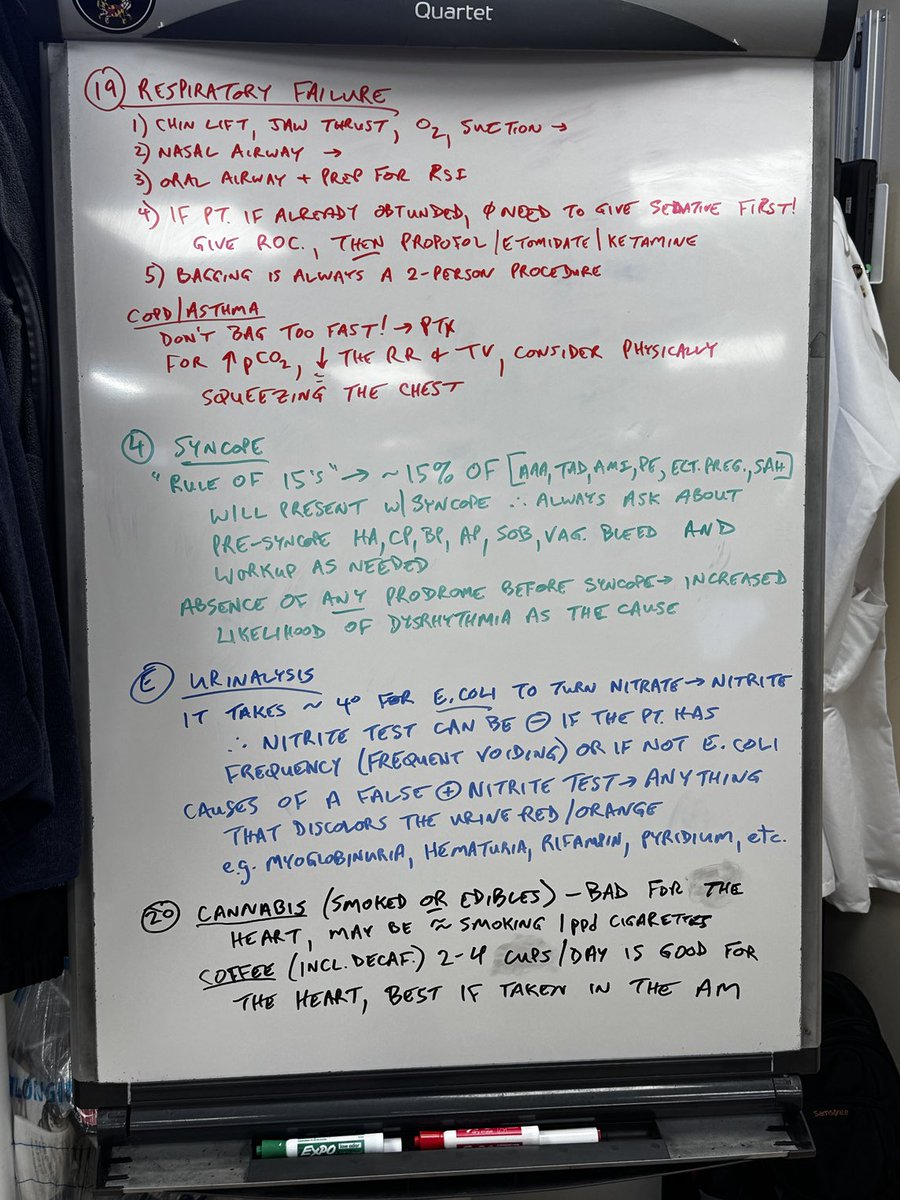 Quartet
19 RESPIRATORY FAILURE
1) CHIN LIFT, JAW THRUST, O2, SUCTION →
2) NASAL AIRWAY →
3) ORAL AIRWAY + PREP FOR RSI
4) IF PT. IF ALREADY OBTUNDED, ∅ NEED TO GIVE SEDATIVE FIRST!
GIVE ROC., THEN PROPOFOL/ETOMIDATE/KETAMINE
5) BAGGING IS ALWAYS A 2-PERSON PROCEDURE
COPD/ASTHMA
DON'T BAG TOO FAST! → PTX
FOR ↑ pCO2, ↓ THE RR & TV, CONSIDER PHYSICALLY
SQUEEZING THE CHEST
4 SYNCOPE
"RULE OF 15'S" → ~15% OF [AAA, TAD, AMI, PE, ECT. PREG., SAH]
WILL PRESENT W/ SYNCOPE ∴ ALWAYS ASK ABOUT
PRE-SYNCOPE HA, CP, BP, AP, SOB, VAG. BLEED AND
WORKUP AS NEEDED
ABSENCE OF ANY PRODROME BEFORE SYNCOPE → INCREASED
LIKELIHOOD OF DYSRHYTHMIA AS THE CAUSE
E URINALYSIS
IT TAKES ~ 4° FOR E. COLI TO TURN NITRATE → NITRITE
∴ NITRITE TEST CAN BE ⊖ IF THE PT. HAS
FREQUENCY (FREQUENT VOIDING) OR IF NOT E. COLI
CAUSES OF A FALSE ⊕ NITRITE TEST → ANYTHING
THAT DISCOLORS THE URINE RED/ORANGE
e.g. MYOGLOBINURIA, HEMATURIA, RIFAMPIN, PYRIDIUM, etc.
20 CANNABIS (SMOKED OR EDIBLES) - BAD FOR THE
HEART, MAY BE ≈ SMOKING 1ppd CIGARETTES
COFFEE (INCL. DECAF.) 2-4 CUPS/DAY IS GOOD FOR
THE HEART, BEST IF TAKEN IN THE AM
EXPO
samsonite